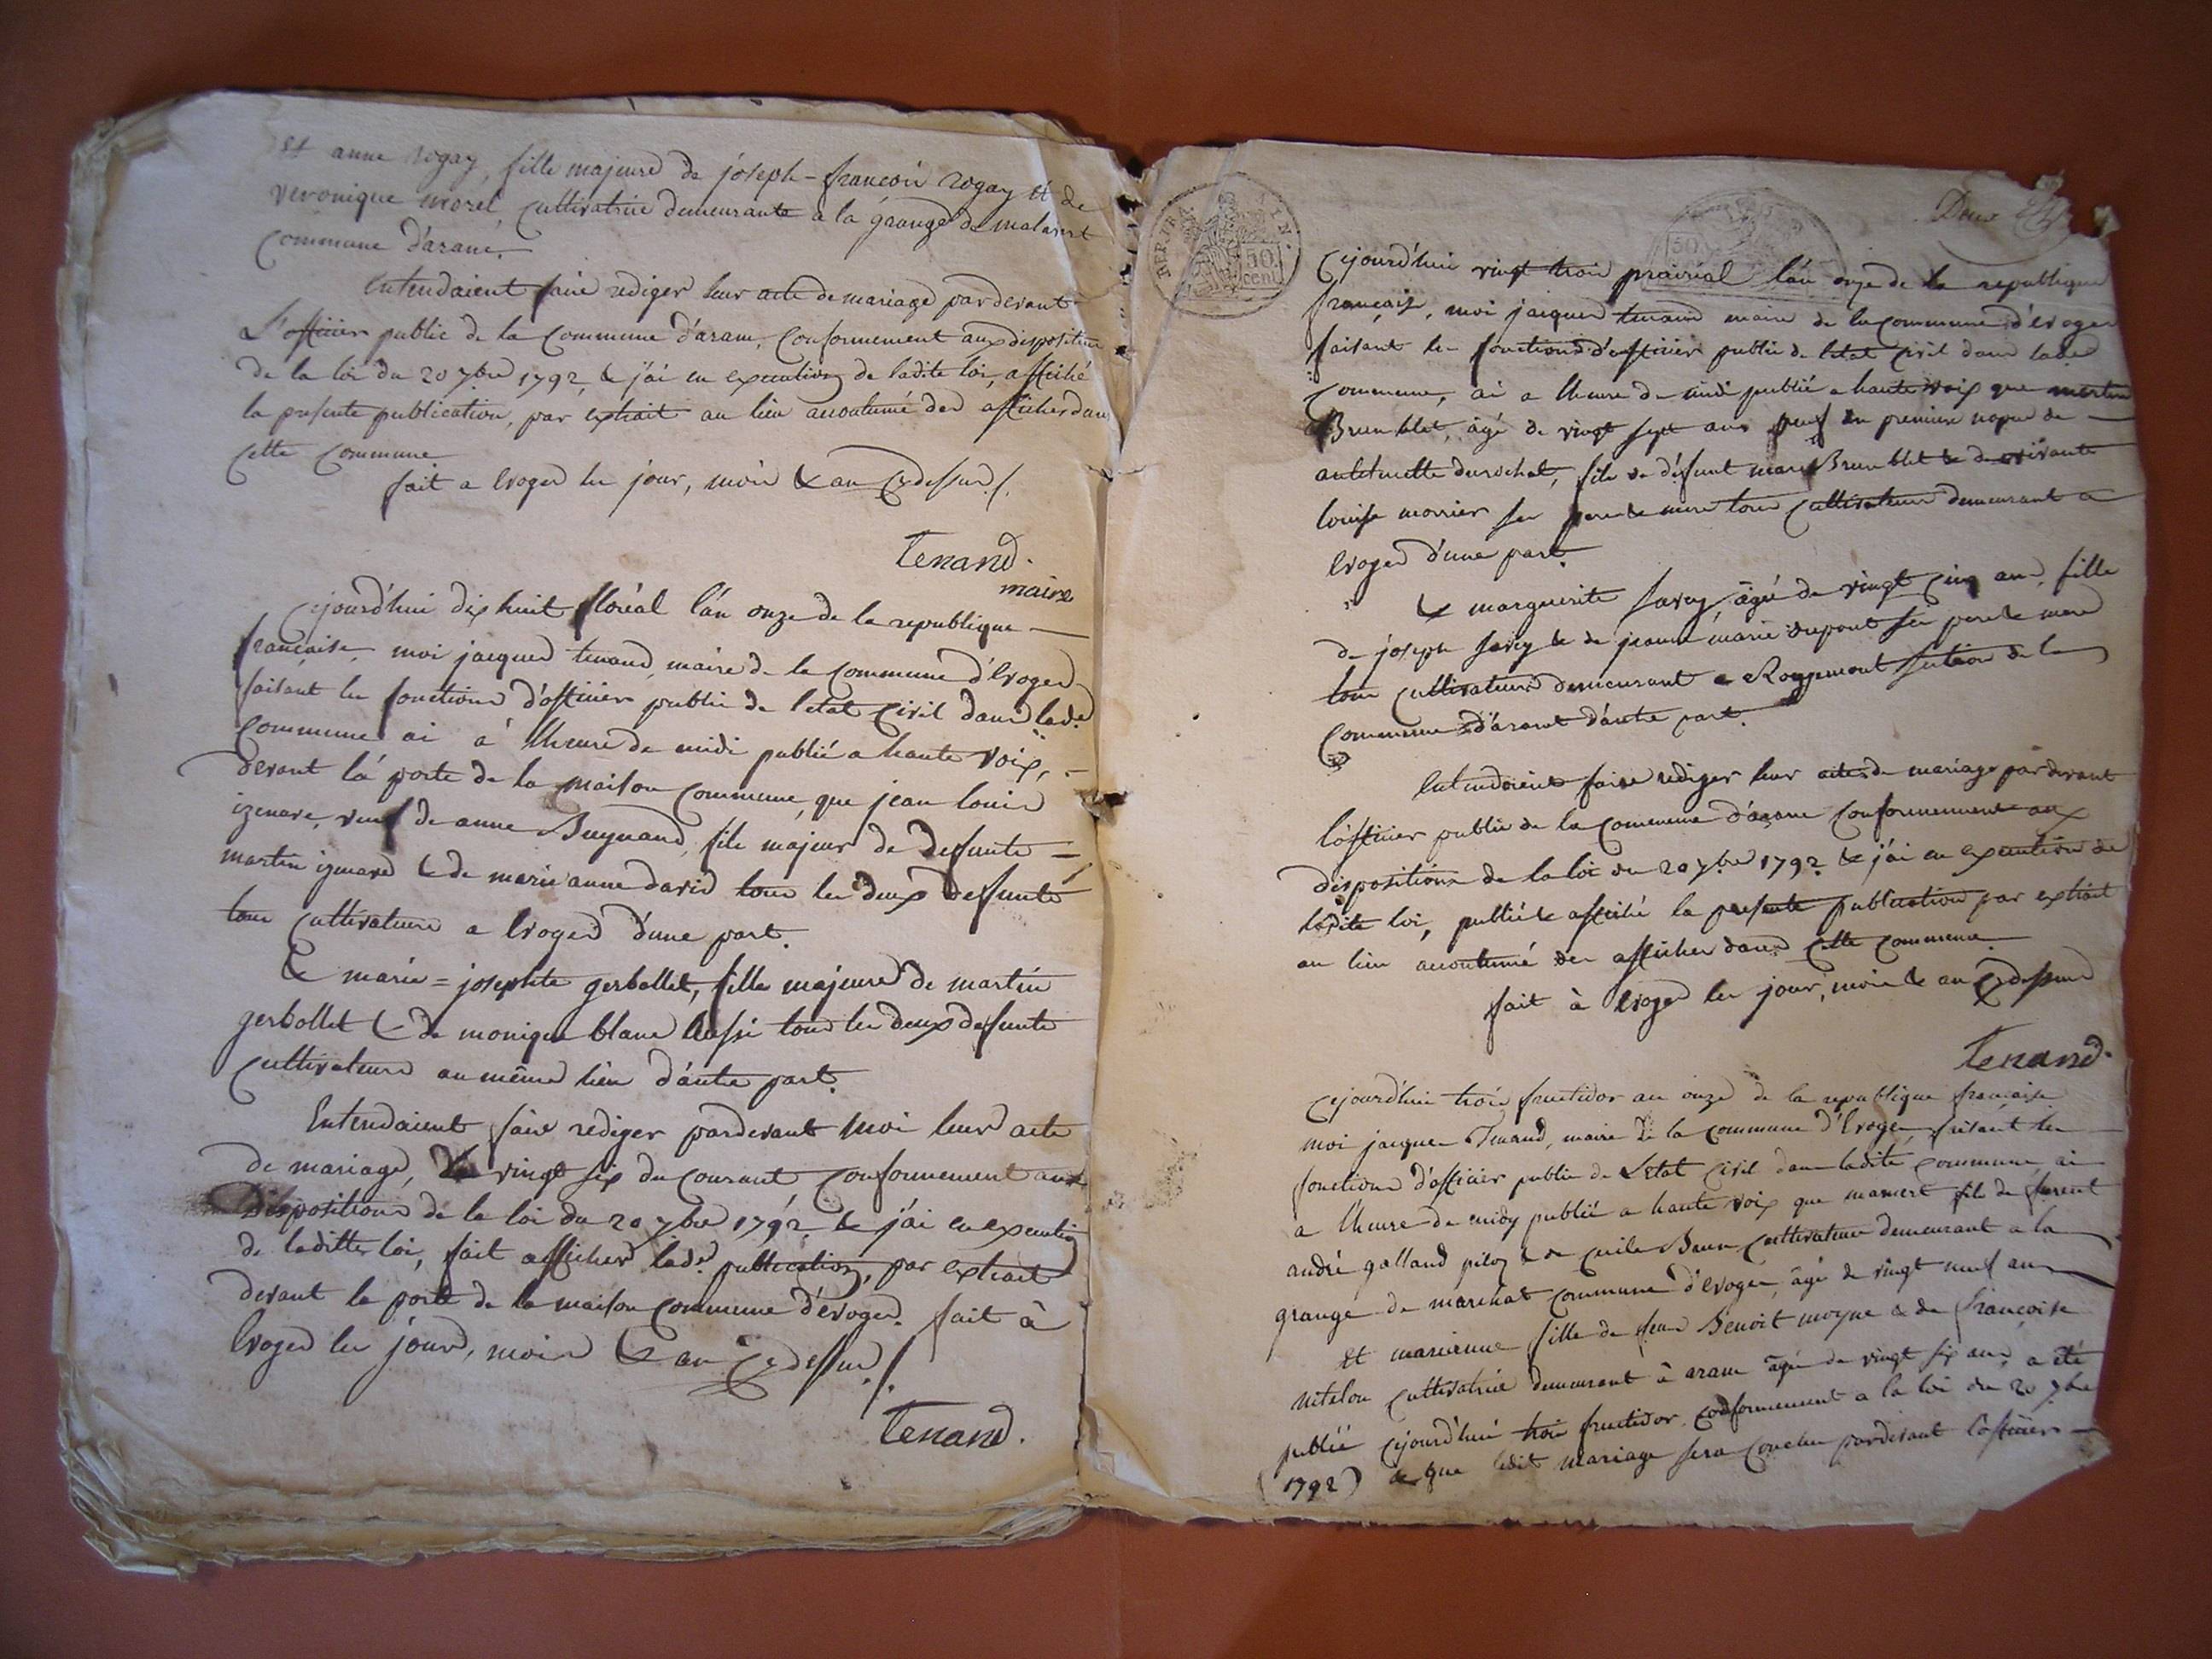 Et anne rogay, fille majeure de joseph-françois rogay et de
veronique morel, cultivatrice demeurante a la grange de malavert
commune d'arane.
Entendaient faire rediger leur acte de mariage pardevant
L'officier public de la commune d'arane, conformement aux disposition
de la loi du 20 7bre 1792, & j'ai en execution de ladite loi, affiché
la presente publication, par extrait au lieu accoutumé des affiches dans
cette commune
fait a Evoges les jour, mois & an cydessus ./.
Tenand.
maire
Cejourd'hui dix huit floréal l'an onze de la republique
française, moi jacques tenand, maire de la commune d'Evoges
faisant les fonctions d'officier public de letat civil dans lade
commune ai a lheure de midi publié a haute voix,
devant la porte de la maison commune, que jean louis
izenare, veuf de anne Buynand, fils majeur de defunts
martin izenare & de marie anne david tous les deux defunts
tous cultivateurs a Evoges d'une part.
& marie=josephte gerbollet, fille majeure de martin
gerbollet & de monique blanc aussi tous les deux defunts
cultivateurs au même lieu d'autre part.
Entendaient faire rediger pardevant moi leur acte
de mariage, le vingt six du courant conformement aux
dispositions de la loi du 20 7bre 1792, & j'ai en execution
de laditte loi, fait afficher lade publication, par extrait
devant la porte de la maison commune d'evoges. fait à
Evoges les jour, mois & an cydessus ./.
Tenand.
DEP. DE L'AIN.
50
cent
50
Deux
Cejourd'hui vingt trois prairial l'an onze de la republique
française, moi jacques tenand maire de la commune d'Evoges
faisant les fonctions d'officier public de letat civil dans lade
commune, ai a lheure de midi publié a haute voix que martin
Brun blet, âgé de vingt sept ans veuf en premiere nopce de
antelmette durochat, fils de défunt marc Brun blet & de vivante
louise monnier ses pere & mere tous cultivateurs demeurant a
Evoges d'une part.
& marguerite savey, âgée de vingt cinq ans, fille
de joseph savey & de jeanne marie dupont ses pere & mere
tous cultivateurs demeurant a Rougemont section de la
commune d'arane d'autre part.
Entendoient faire rediger leur acte de mariage pardevant
l'officier public de la commune d'arane conformement aux
dispositions de la loi du 20 7bre 1792 & j'ai en execution de
ladite loi, publié & affiché la presente publication par extrait
au lieu accoutumé des affiches dans cette commune.
fait à Evoges les jour, mois & an cydessus
Tenand.
Cejourd'hui trois fructidor an onze de la republique française
moi jacques Tenand, maire de la commune d'Evoges, faisant les
fonctions d'officier public de L'état civil dans ladite commune, ai
a lheure de midy publié a haute voix que mamert fils de furent
andré galland piloz & de cecile Brun cultivateur demeurant a la
grange de marchat commune d'Evoges, âgé de vingt neuf ans
Et marianne fille de feu Benoit moyne & de françoise
cultivatrice demeurant à arane âgée de vingt six ans, a été
publié cejourd'hui trois fructidor conformement a la loi du 20 7bre
1792) & que ledit mariage sera conclu pardevant l'officier